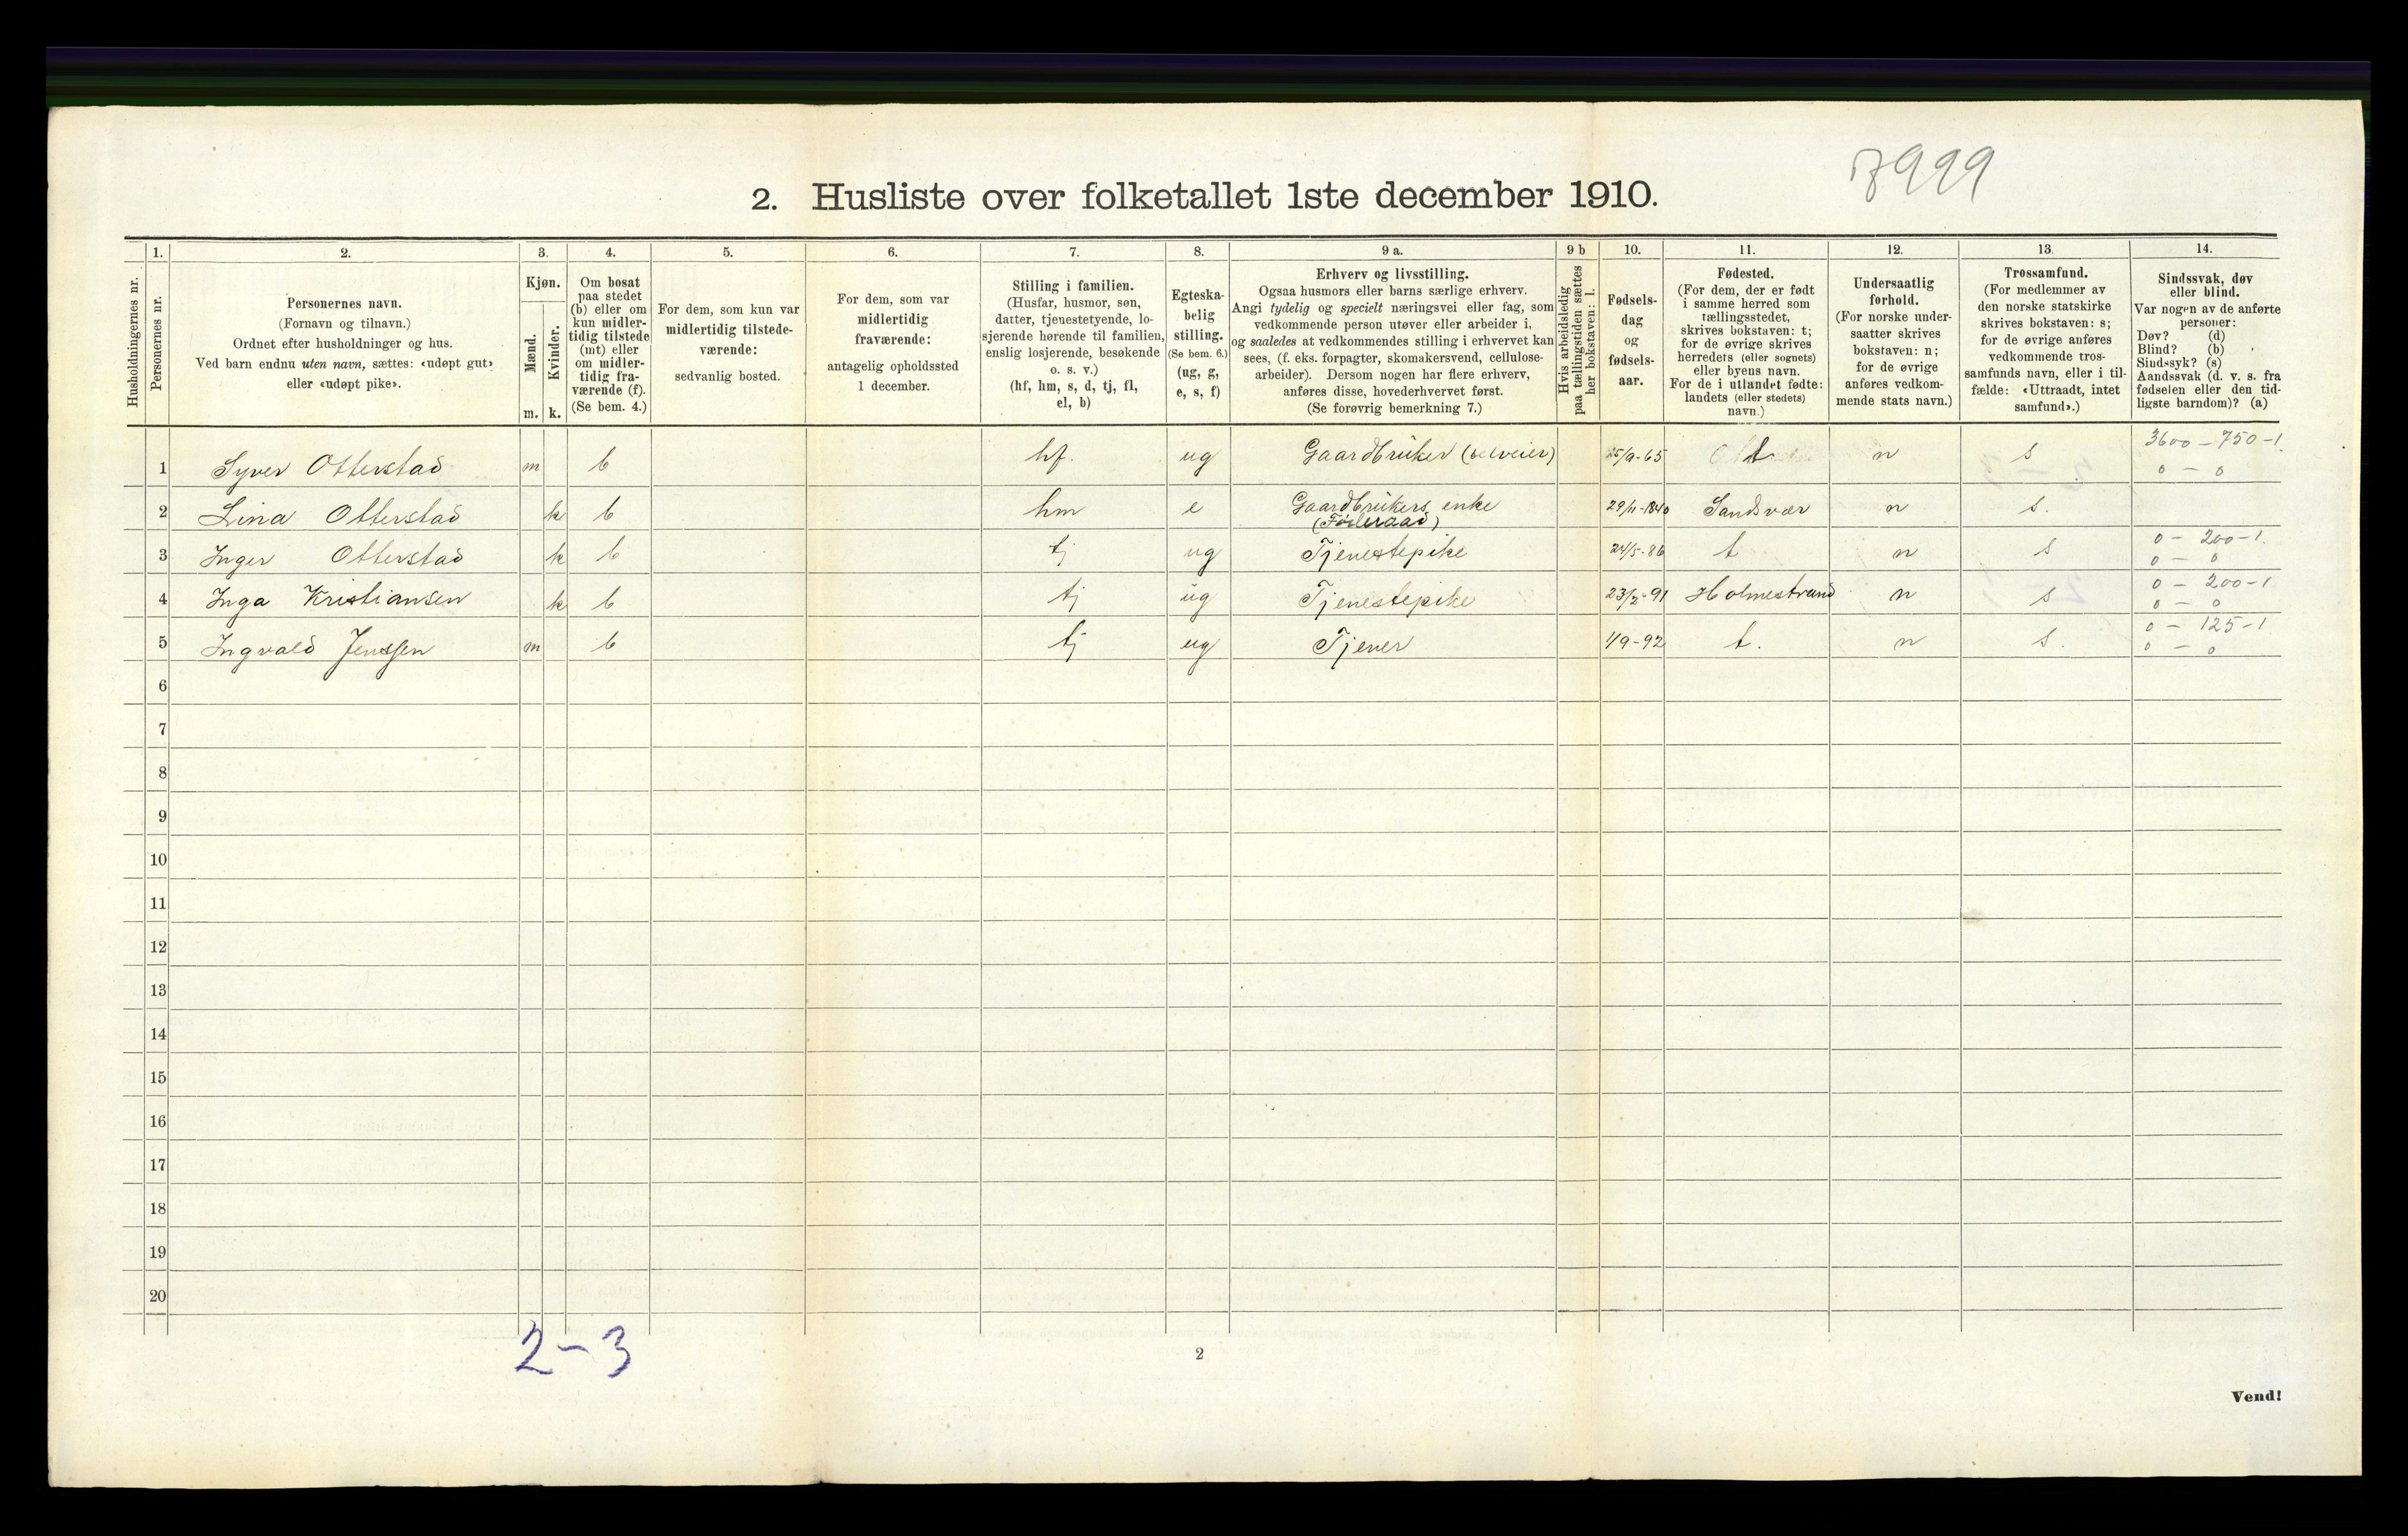 2. Husliste over folketallet 1ste december 1910.
Husholdningernes nr.
1.
Personernes nr.
2.
Personernes navn.
(Fornavn og tilnavn.)
Ordnet efter husholdninger og hus.
Ved barn endnu uten navn, sættes: «udøpt gut»
eller «udøpt pike».
3.
Kjøn.
Mænd.
m.
Kvinder.
k.
4.
Om bosat
paa stedet
(b) eller om
kun midler-
tidig tilstede
(mt) eller
om midler-
tidig fra-
værende (f).
(Se bem. 4.)
5.
For dem, som kun var
midlertidig tilstede-
værende:
sedvanlig bosted.
6.
For dem, som var
midlertidig
fraværende:
antagelig opholdssted
1 december.
7.
Stilling i familien.
(Husfar, husmor, søn,
datter, tjenestetyende, lo-
sjerende hørende til familien,
enslig losjerende, besøkende
o. s. v.)
(hf, hm, s, d, tj, fl,
el, b)
8.
Egteska-
belig
stilling.
(Se bem. 6.)
(ug, g,
e, s, f)
9 a.
Erhverv og livsstilling.
Ogsaa husmors eller barns særlige erhverv.
Angi tydelig og specielt næringsvei eller fag, som
vedkommende person utøver eller arbeider i,
og saaledes at vedkommendes stilling i erhvervet kan
sees, (f. eks. forpagter, skomakersvend, cellulose-
arbeider). Dersom nogen har flere erhverv,
anføres disse, hovederhvervet først.
(Se forøvrig bemerkning 7.)
9 b
Hvis arbeidsledig
paa tællingstiden sættes
her bokstaven: l.
10.
Fødsels-
dag
og
fødsels-
aar.
11.
Fødested.
(For dem, der er født
i samme herred som
tællingsstedet,
skrives bokstaven: t;
for de øvrige skrives
herredets (eller sognets)
eller byens navn.
For de i utlandet fødte:
landets (eller stedets)
navn.)
12.
Undersaatlig
forhold.
(For norske under-
saatter skrives
bokstaven: n;
for de øvrige
anføres vedkom-
mende stats navn.)
13.
Trossamfund.
(For medlemmer av
den norske statskirke
skrives bokstaven: s;
for de øvrige anføres
vedkommende tros-
samfunds navn, eller i til-
fælde: «Uttraadt, intet
samfund».)
14.
Sindssvak, døv
eller blind.
Var nogen av de anførte
personer:
Døv? (d)
Blind? (b)
Sindssyk? (s)
Aandssvak (d. v. s. fra
fødselen eller den tid-
ligste barndom)? (a)
3600 – 750 – 1
1 Syver Otterstad m b hf. ug Gaardbruker (selveier) 25/9-65 t n s 0 – 0
2 Lina Otterstad k b hm e Gaardbrukers enke 29/11-1840 Sandsvær n s.
(Føderaad)
0 – 200 – 1.
3 Inger Otterstad k b tj ug Tjenestepike 24/5-86 t n s 0 – 0
0 – 200 – 1
4 Inga Kristiansen k b tj ug Tjenestepike 23/2-91 Holmestrand n s 0 – 0
0 – 125 – 1
5 Ingvald Jenssen m b tj ug Tjener 1/9-92 t. n s. 0 – 0
6
7
8
9
10
11
12
13
14
15
16
17
18
19
20
2 - 3
2
Vend!